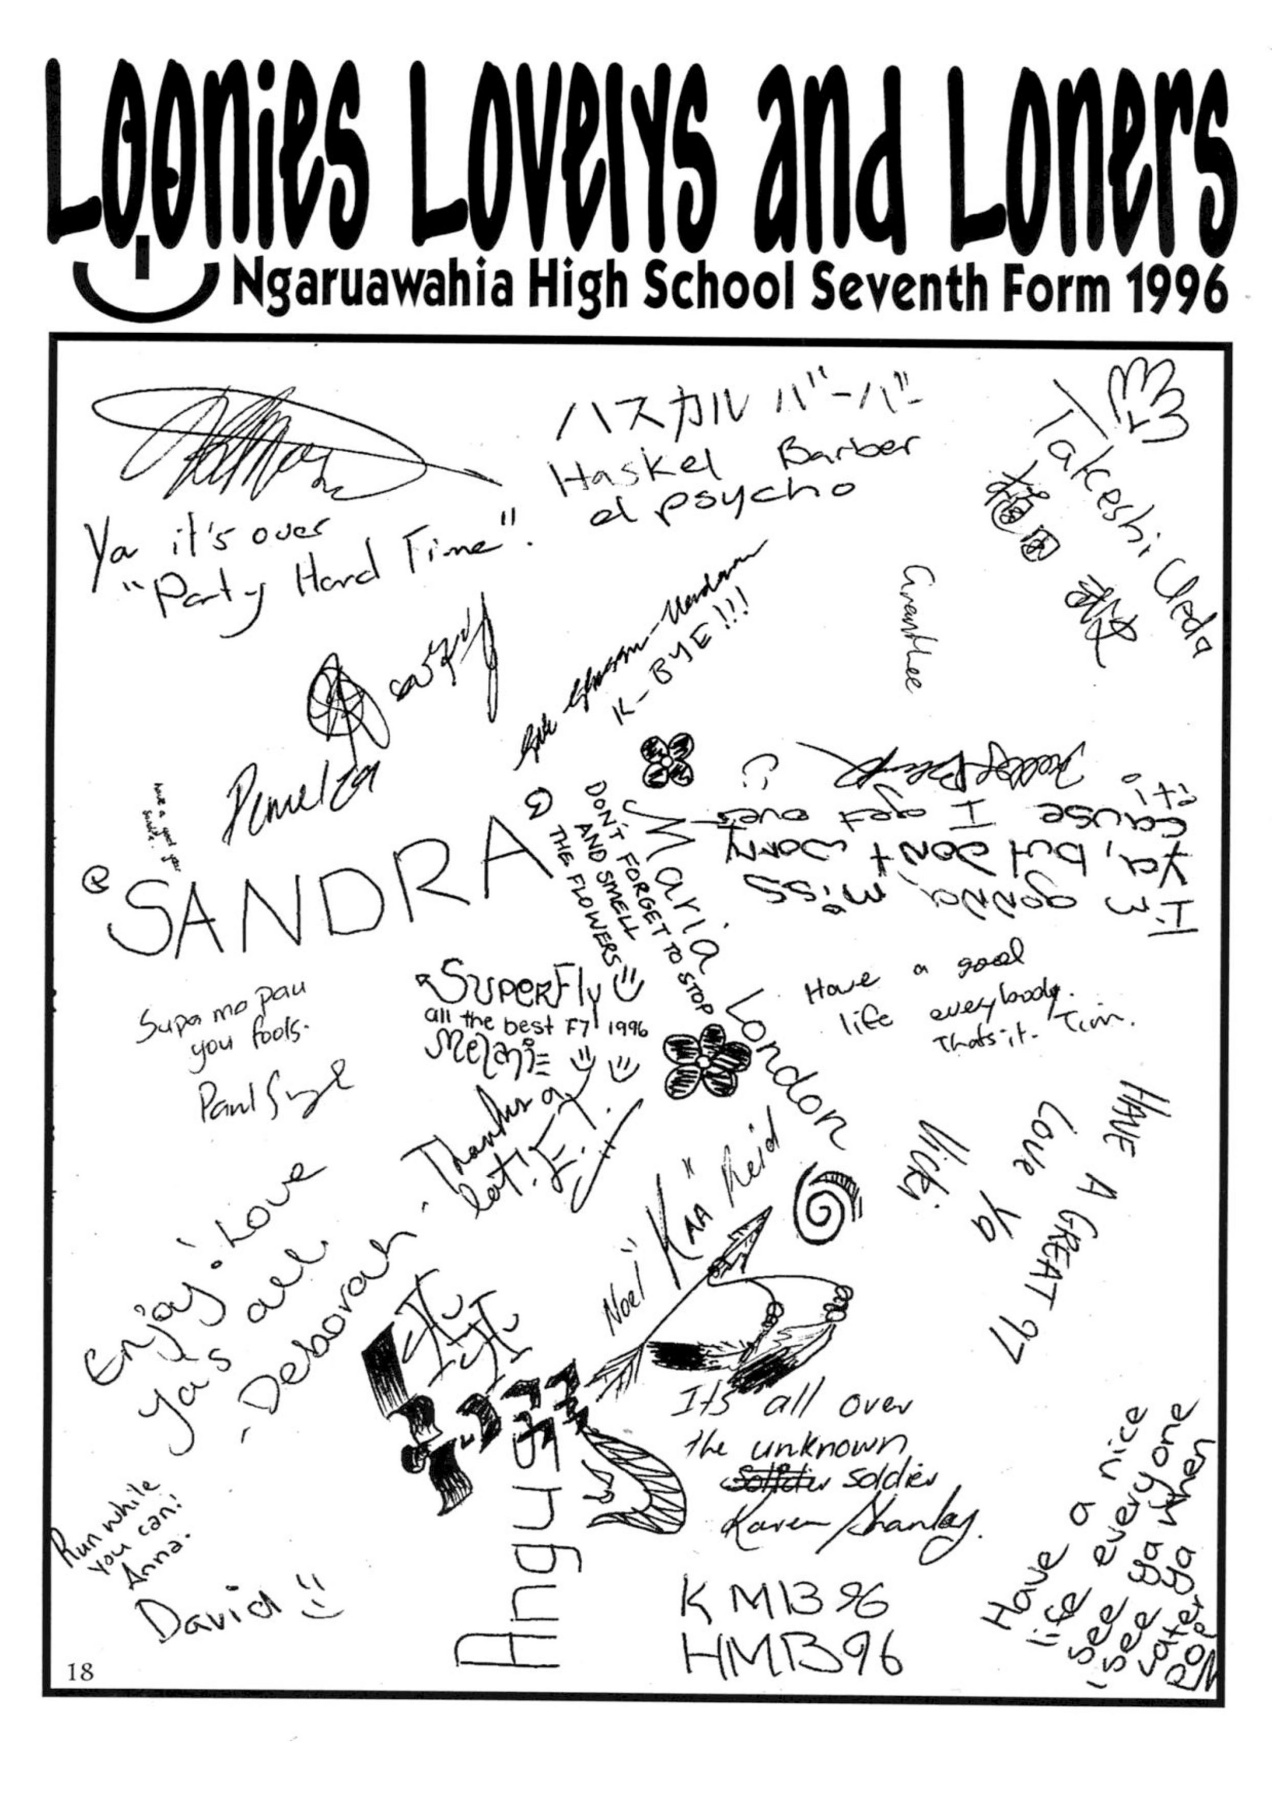 Loonies Lovelys and Loners
Ngaruawahia High School Seventh Form 1996
Ya it's over
"Party Hard Time".
ハスカル バーバー
Haskel Barber
el psycho
Takeshi Ueda
植田
K-BYE!!!
Pamelza
have a good year
SANDRA
Maria London
DON'T FORGET TO STOP
AND SMELL
THE FLOWERS
Hi 3 gonna miss
ya, but don't worry
cause I get over
it!
Supa mo pau
you fools.
Paul
SUPERFly
all the best F7 1996
Melanie
Have a good
life everybody.
Thats it. Tim.
Thanks a
lot!
HAVE A GREAT 97
Love Ya
Vicki
Enjoy! Love
Ya's all
-Deborah
Noel "KAA" Reid
Its all over
the unknown
soldier
Karen Shanley.
Angus
Run while
you can!
Anna.
David
KMB 96
HMB96
Have a nice
life everyone
see ya when
Later Ya
18